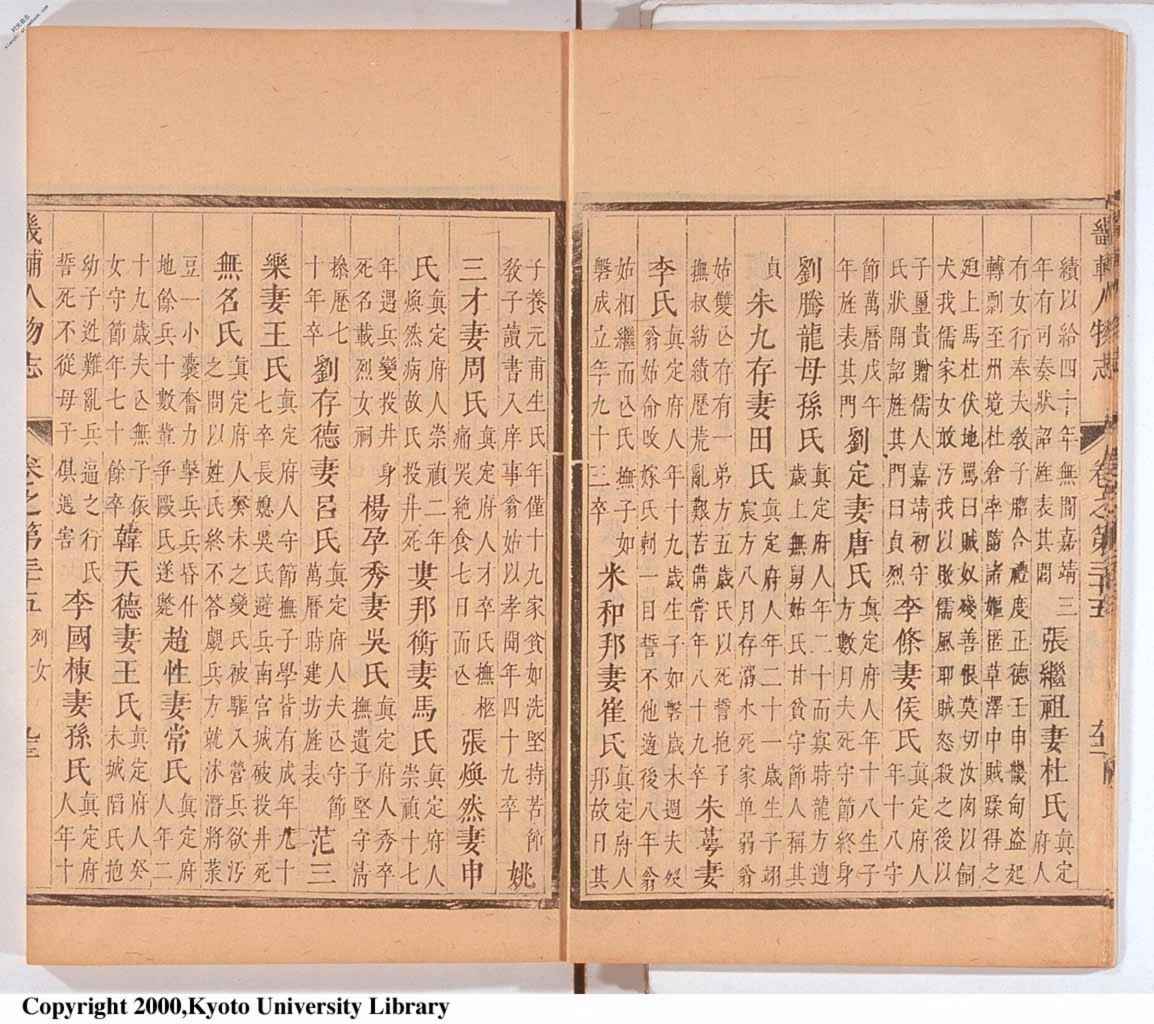 畿輔人物志 卷之第三十五
績以給四十年無間嘉靖三
年有司奏狀詔旌表其閭
張繼祖妻杜氏
真定
府人
有女行奉夫敎子脗合禮度正德壬申畿甸盜起
轉剽至州境杜倉卒偕諸嫗匿草澤中賊蹂得之
廹上馬杜伏地罵曰賊奴殘善恨莫切汝肉以飼
犬我儒家女敢汚我以敗儒風耶賊怒殺之後以
子璽貴贈儒人嘉靖初守
氏狀開詔旌其門曰貞烈
李條妻侯氏
真定府人
年十八守
節萬曆戊午
年旌表其門
劉定妻唐氏
真定府人年十八生子
方數月夫死守節終身
劉騰龍母孫氏
真定府人年二十而寡時龍方遺
歲上無舅姑氏甘貧守節人稱其
貞
朱九存妻田氏
真定府人年二十一歲生子翊
宸方八月存溺水死家单弱翁
姑雙亡存有一弟方五氏以死誓抱子
撫叔紡績歷荒亂艱苦備嘗年八十九卒
朱萼妻
李氏
真定府人年十九歲生子如磐歲未週夫歿
翁姑俞改嫁氏刺一目誓不他適後八年翁
姑相繼而亡氏撫子如
磐成立年九十三卒
米和邦妻崔氏
真定府人
邦故日其
子養元甫生氏年僅十九家貧如洗堅持苦節
敎子讀書入庠事翁姑以孝聞年四十九卒
姚
三才妻周氏
真定府人才卒氏撫柩
痛哭絶食七日而亡
張煥然妻申
氏
真定府人崇禎二年
煥然病故氏投井死
婁邦衡妻馬氏
真定府人
崇禎十七
年遇兵變投井身
死名載烈女祠
楊孕秀妻吳氏
真定府人秀卒
撫遺子堅守清
操歷七
十年卒
劉存德妻呂氏
真定府人夫亡守節
萬曆時建坊旌表
范三
樂妻王氏
真定府人守節撫子學皆有成年九十
七卒長媳吳氏避兵南宮城破投井死
無名氏
真定府人癸未之變氏被驅入營兵欲汚
之問以姓氏終不答覷兵方就沐潛將菉
豆一小囊奮力擊兵兵昏仆
地餘兵十數輩爭毆氏遂斃
趙性妻常氏
真定
府人年二
十九歲夫亡無子依
女守節年七十餘卒
韓天德妻王氏
真定府人癸
未城陷氏抱
幼子逃難亂兵逼之行氏
誓死不從母子俱遇害
李國棟妻孫氏
真定府
人年十
畿輔人物志 卷之第三十五 列女
Copyright 2000,Kyoto University Library